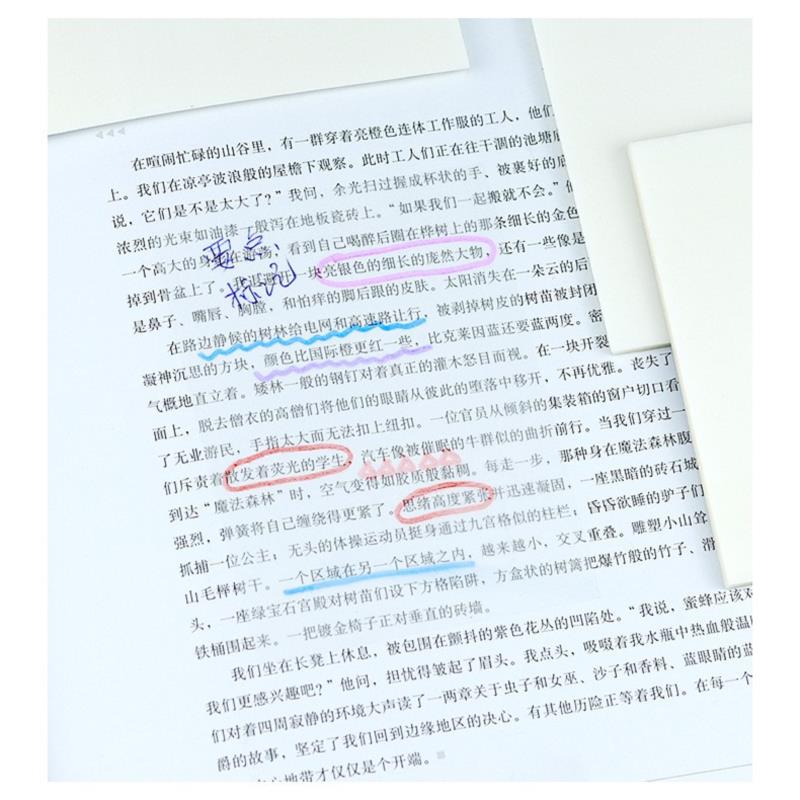 在喧闹忙碌的山谷里，有一群穿着亮橙色连体工作服的工人，他们
上。我们在凉亭波浪般的屋檐下观察。此时工人们正在往干涸的池塘底
说，它们是不是太大了？”我问，余光扫过握成杯状的手、被裹好的底
浓烈的光束如油漆一般泻在地板瓷砖上。“如果我们一起搬就不会。”他
一个高大的身 荡，看到自己喝醉后圈在桦树上的那条细长的金色
要点：
掉到骨盆上了。 一块亮银色的细长的庞然大物，还有一些像是
标记
是鼻子、嘴唇、胸膛，和怕痒的脚后跟的皮肤。太阳消失在一朵云的后
在路边静候的树林给电网和高速路让行，被剥掉树皮的树苗被封闭
凝神沉思的方块，颜色比国际橙更红一些，比克莱因蓝还要蓝两度。密
气概地直立着。矮林一般的钢钉对着真正的灌木怒目而视。在一块开裂
面上，脱去僧衣的高僧们将他们的眼睛从彼此的堕落中移开，不再优雅。丧失了
了无业游民，手指太大而无法扣上纽扣。一位官员从倾斜的集装箱的窗户切口看
们斥责着散发着荧光的学生，汽车像被催眠的牛群似的曲折前行。当我们穿过一
到达“魔法森林”时，空气变得如胶质般黏稠。每走一步，那种身在魔法森林腹
强烈，弹簧将自己缠绕得更紧了。思绪高度紧张并迅速凝固，一座黑暗的砖石城
抓捕一位公主；无头的体操运动员挺身通过九宫格似的柱栏；昏昏欲睡的驴子们
山毛榉树干。一个区域在另一个区域之内，越来越小，交叉重叠。雕塑小山耸
头，一座绿宝石宫殿对树苗们设下方格陷阱，方盒状的树篱把爆竹般的竹子、滑
铁桶围起来。一把镀金椅子正对垂直的砖墙。
我们坐在长凳上休息，被包围在颤抖的紫色花丛的凹陷处。“我说，蜜蜂应该对
我们更感兴趣吧？”他问，担忧得皱起了眉头。我点头，吸啜着我水瓶中热血般温
们对着四周寂静的环境大声读了一两章关于虫子和女巫、沙子和香料、蓝眼睛的蓝
爵的故事，坚定了我们回到边缘地区的决心。有其他历险正等着我们。在每一个
心地带才仅仅是个开端。